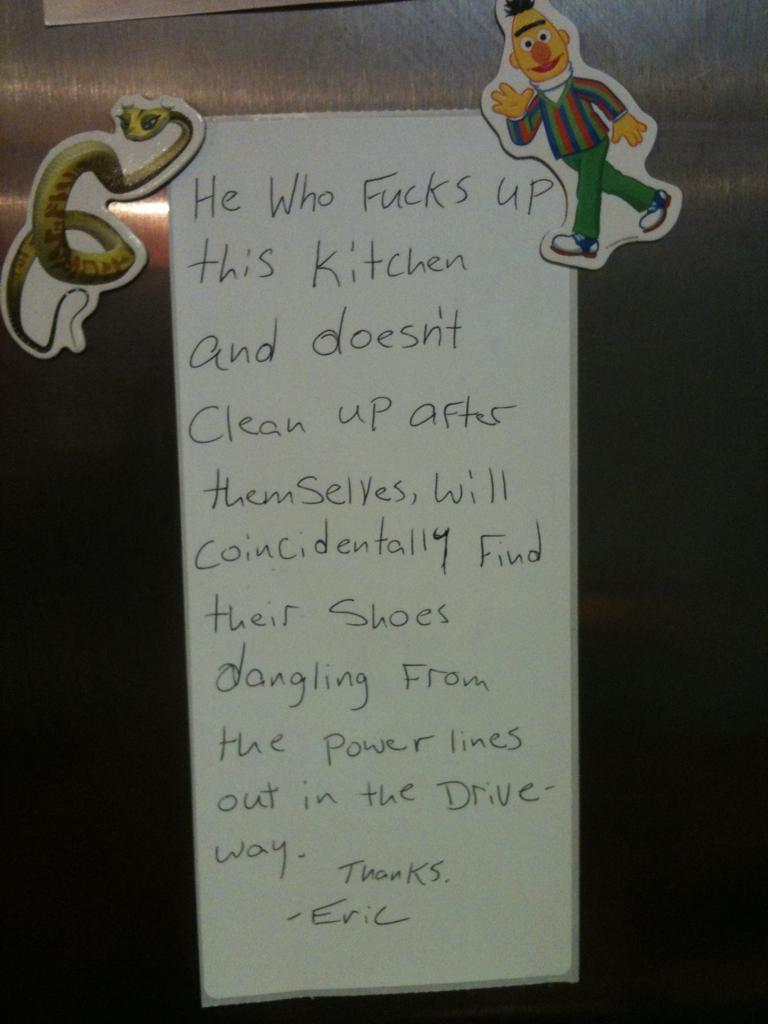 He Who Fucks up
this Kitchen
and doesn't
Clean up after
themselves, Will
coincidentally Find
their Shoes
dangling From
the power lines
out in the Drive-
way.
Thanks.
-Eric